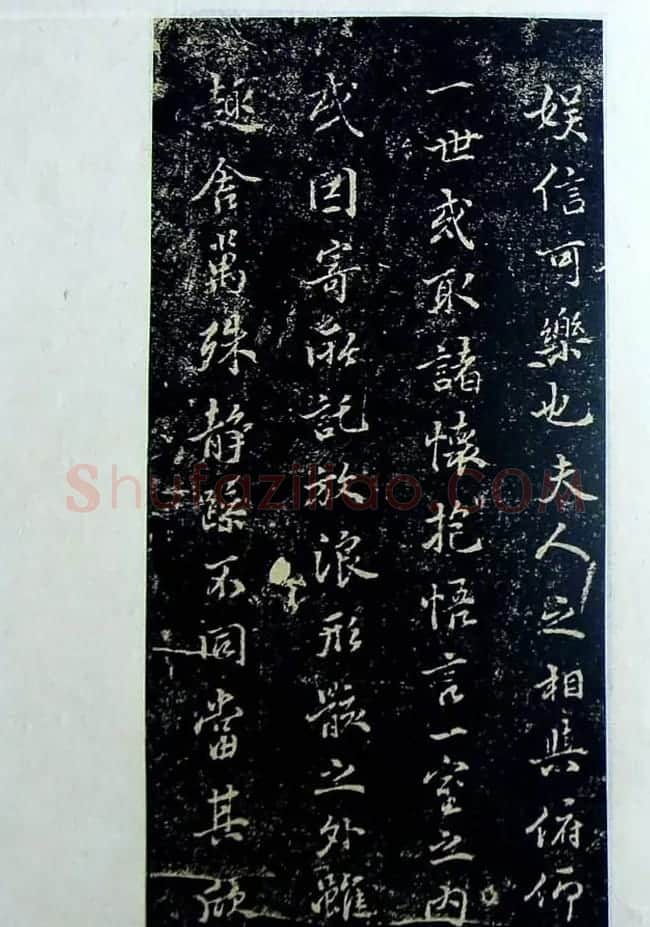 娱信可樂也夫人之相與俯仰
一世或取諸懷抱悟言一室之内
或因寄所託放浪形骸之外雖
趣舍萬殊静躁不同當其欣
Shufaziliao.COM